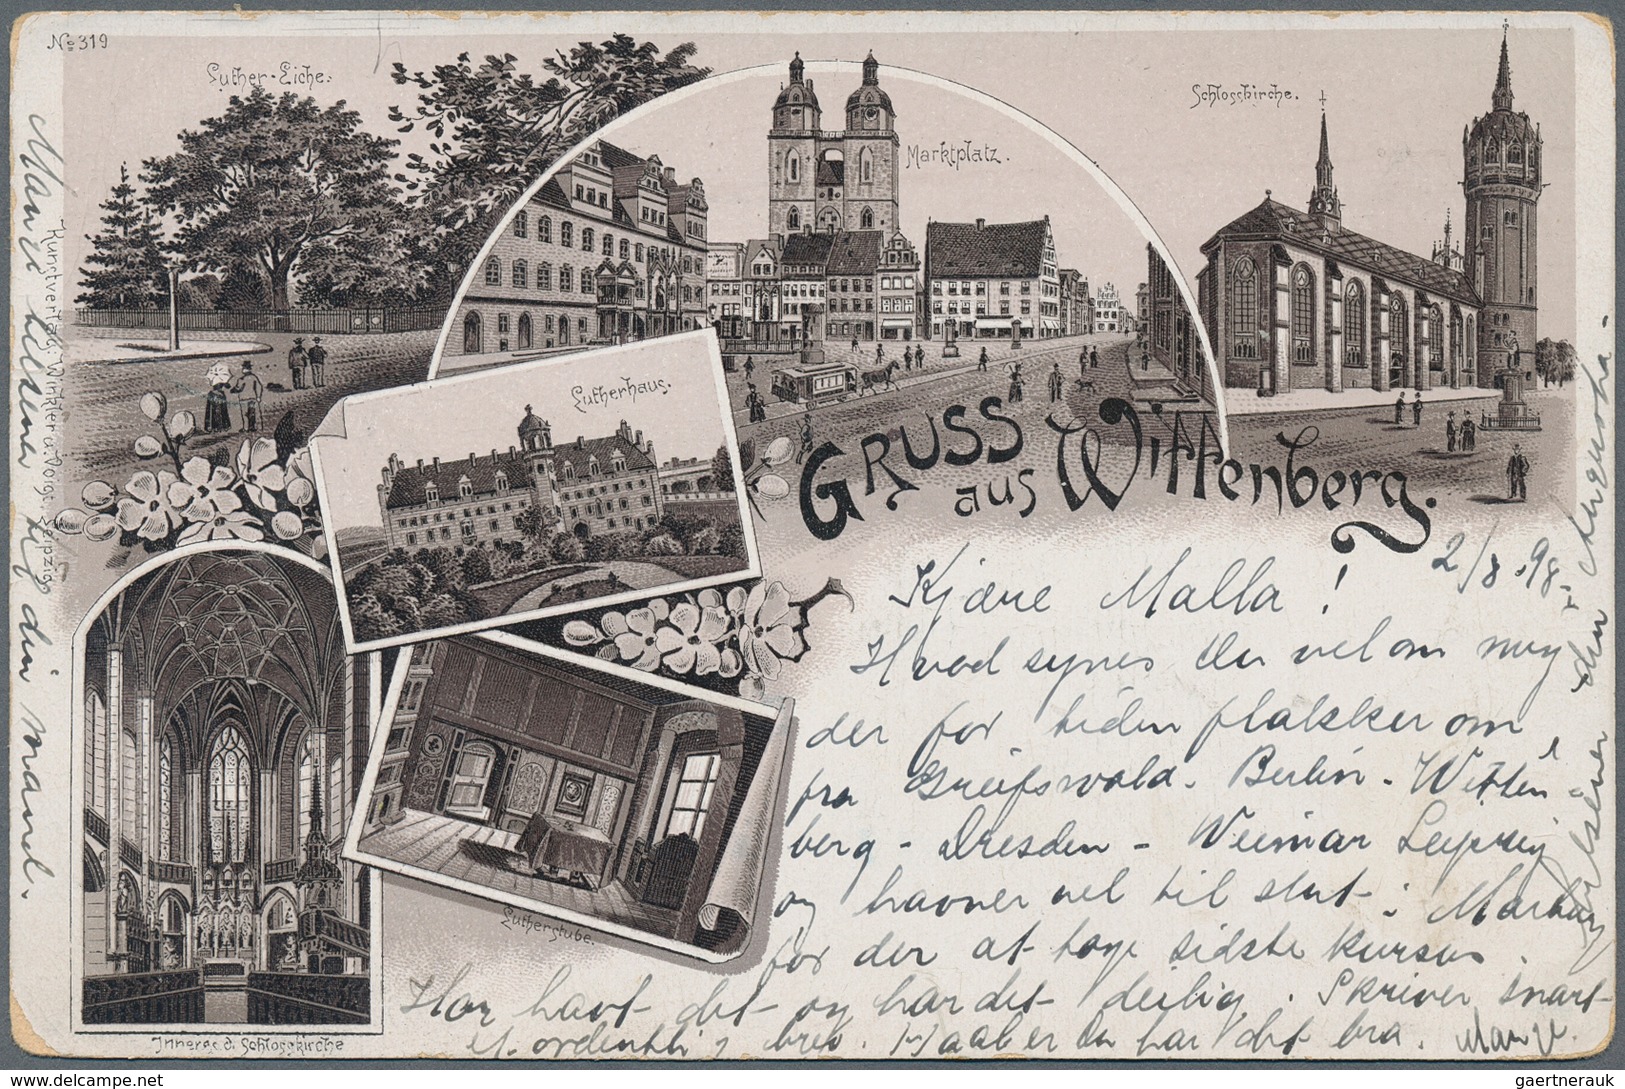 No 319
Luther-Eiche.
Marktplatz.
Schlosskirche.
Lutherhaus.
Gruss
aus Wittenberg.
Lutherstube.
Inneres d. Schlosskirche
Kunstverlag Winkler u. Voigt, Leipzig
2/8.98.
Kjære Malla!
Hvad synes du vel om mig
der for tiden flakker om
fra Greifswald. Berlin. Witten
berg - Dresden - Weimar Leipzig
og havner vel til slut i Marburg
for der at tage sidste kursus.
Har havt det og har det deilig. Skriver snart
et ordentlig brev. Haaber du har det bra.
hilsener til din mand.
hilsener din
delcampe.net
gaertnerauk